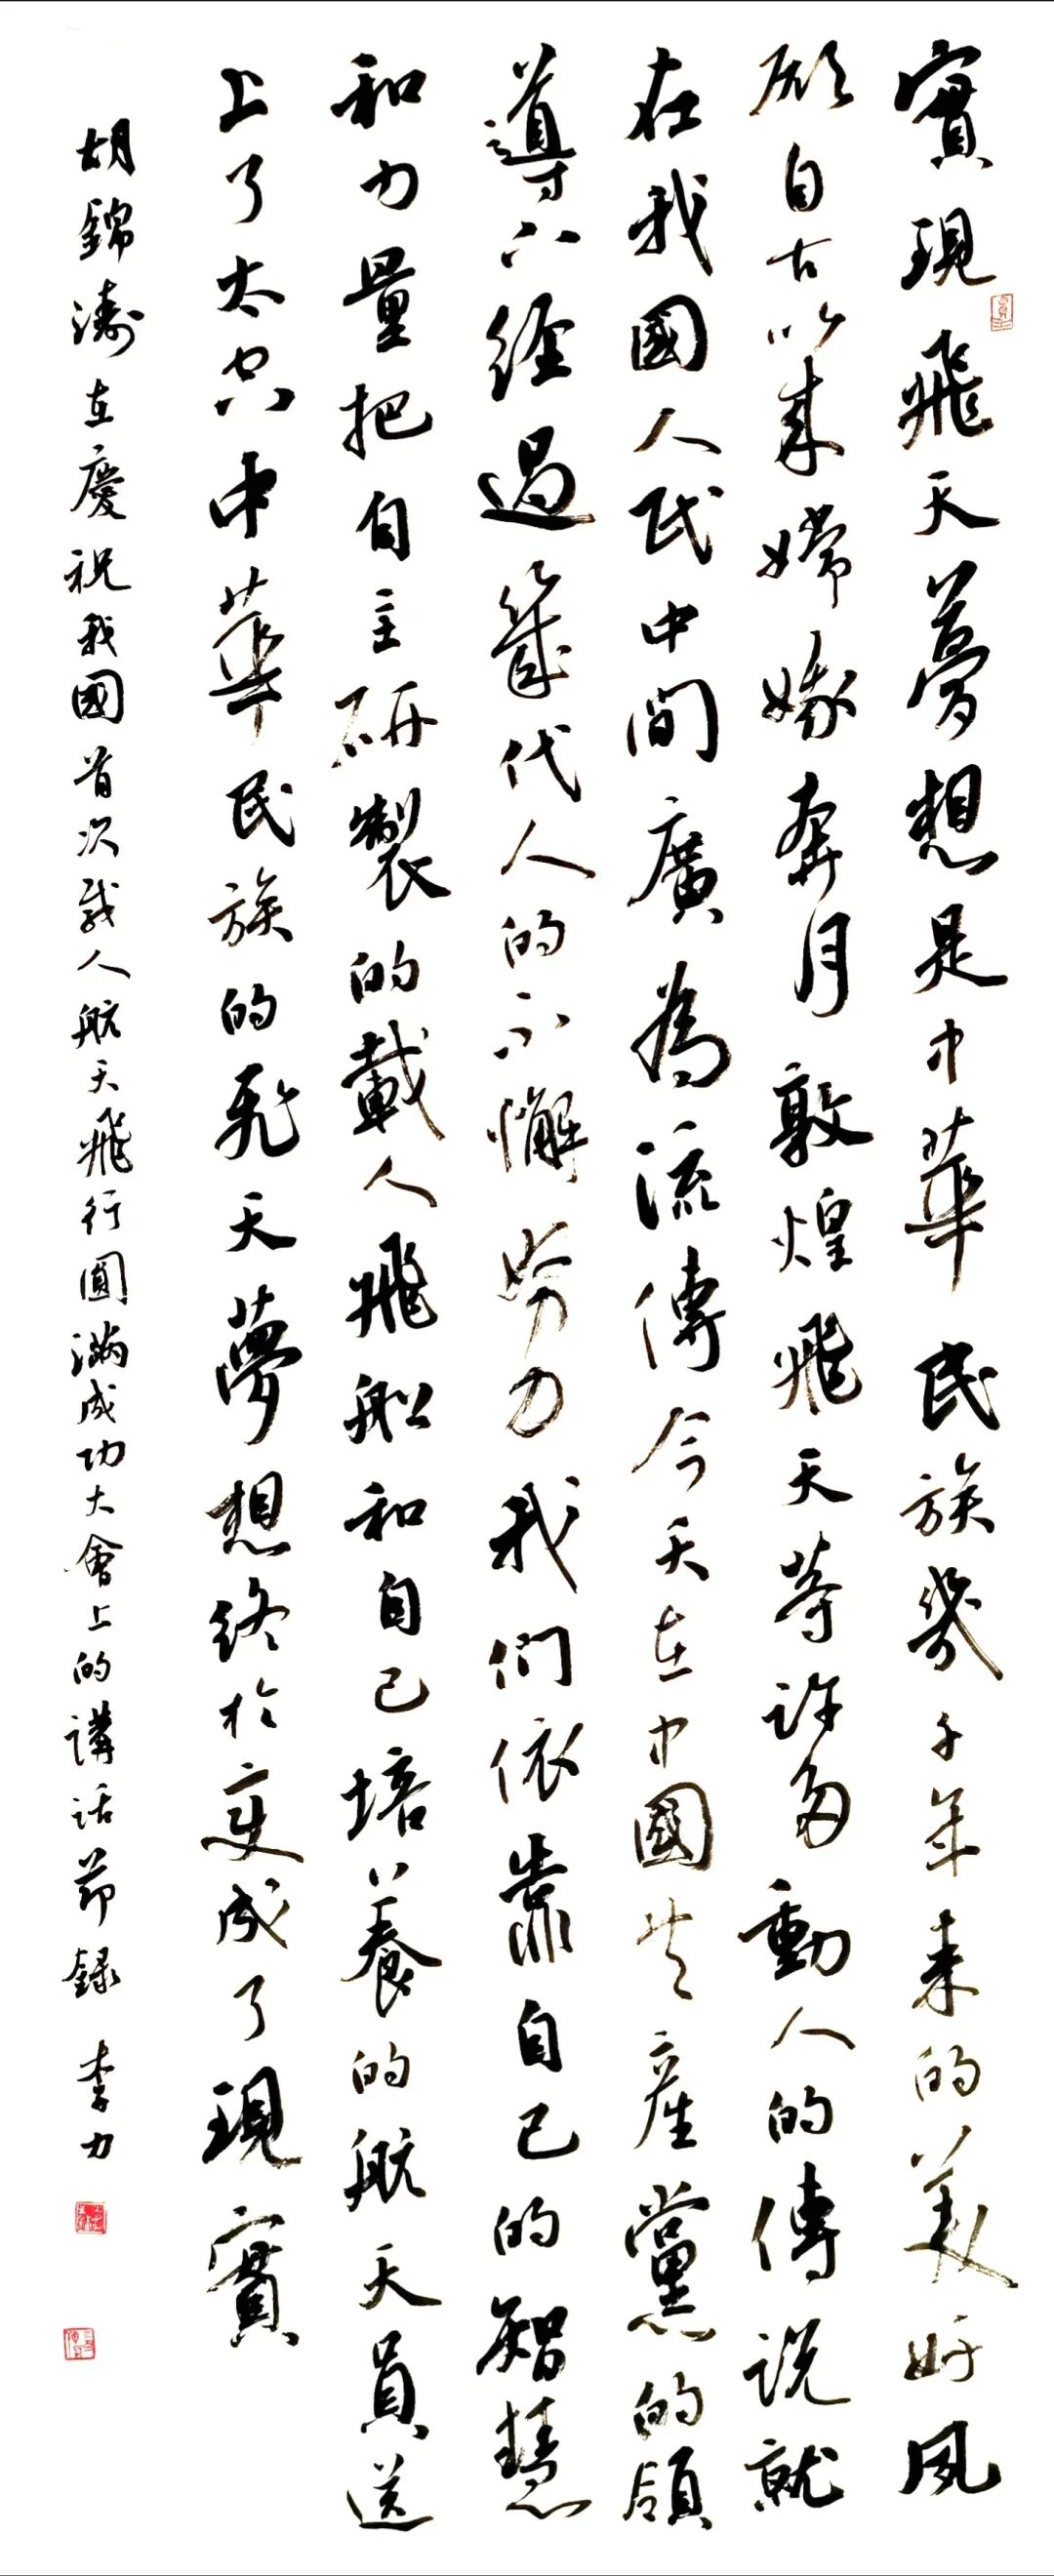 實現飛天夢想是中華民族幾千年来的美好夙
願自古以來嫦娥奔月敦煌飛天等許多動人的傳説就
在我國人民中間廣為流傳今天在中國共産黨的領
導下經過幾代人的不懈努力我們依靠自己的智慧
和力量把自主研製的載人飛船和自己培養的航天員送
上了太空中華民族的飛天夢想終於变成了現實
胡錦濤在慶祝我國首次载人航天飛行圓滿成功大會上的講話節録 李力